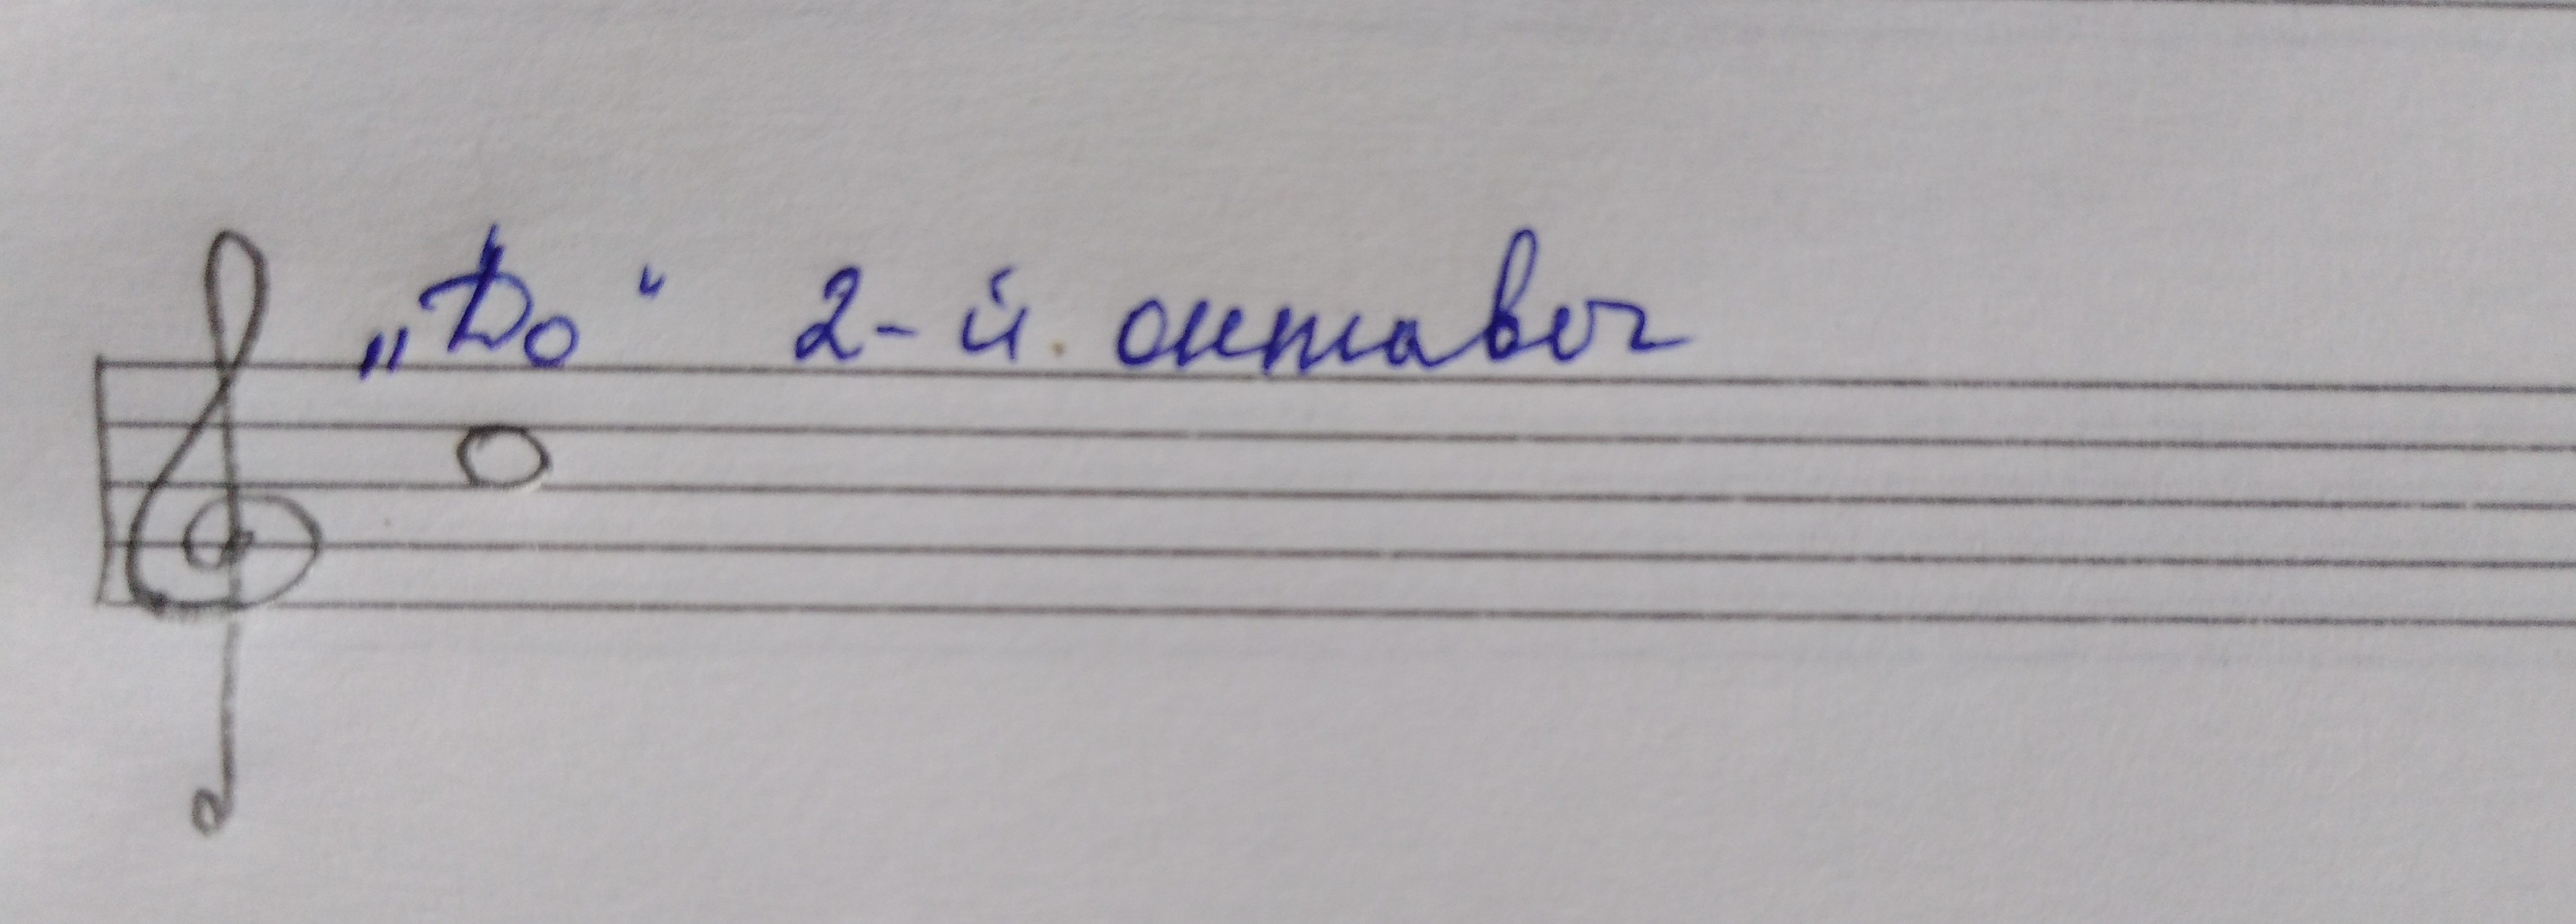 „До“ 2-й. октавы